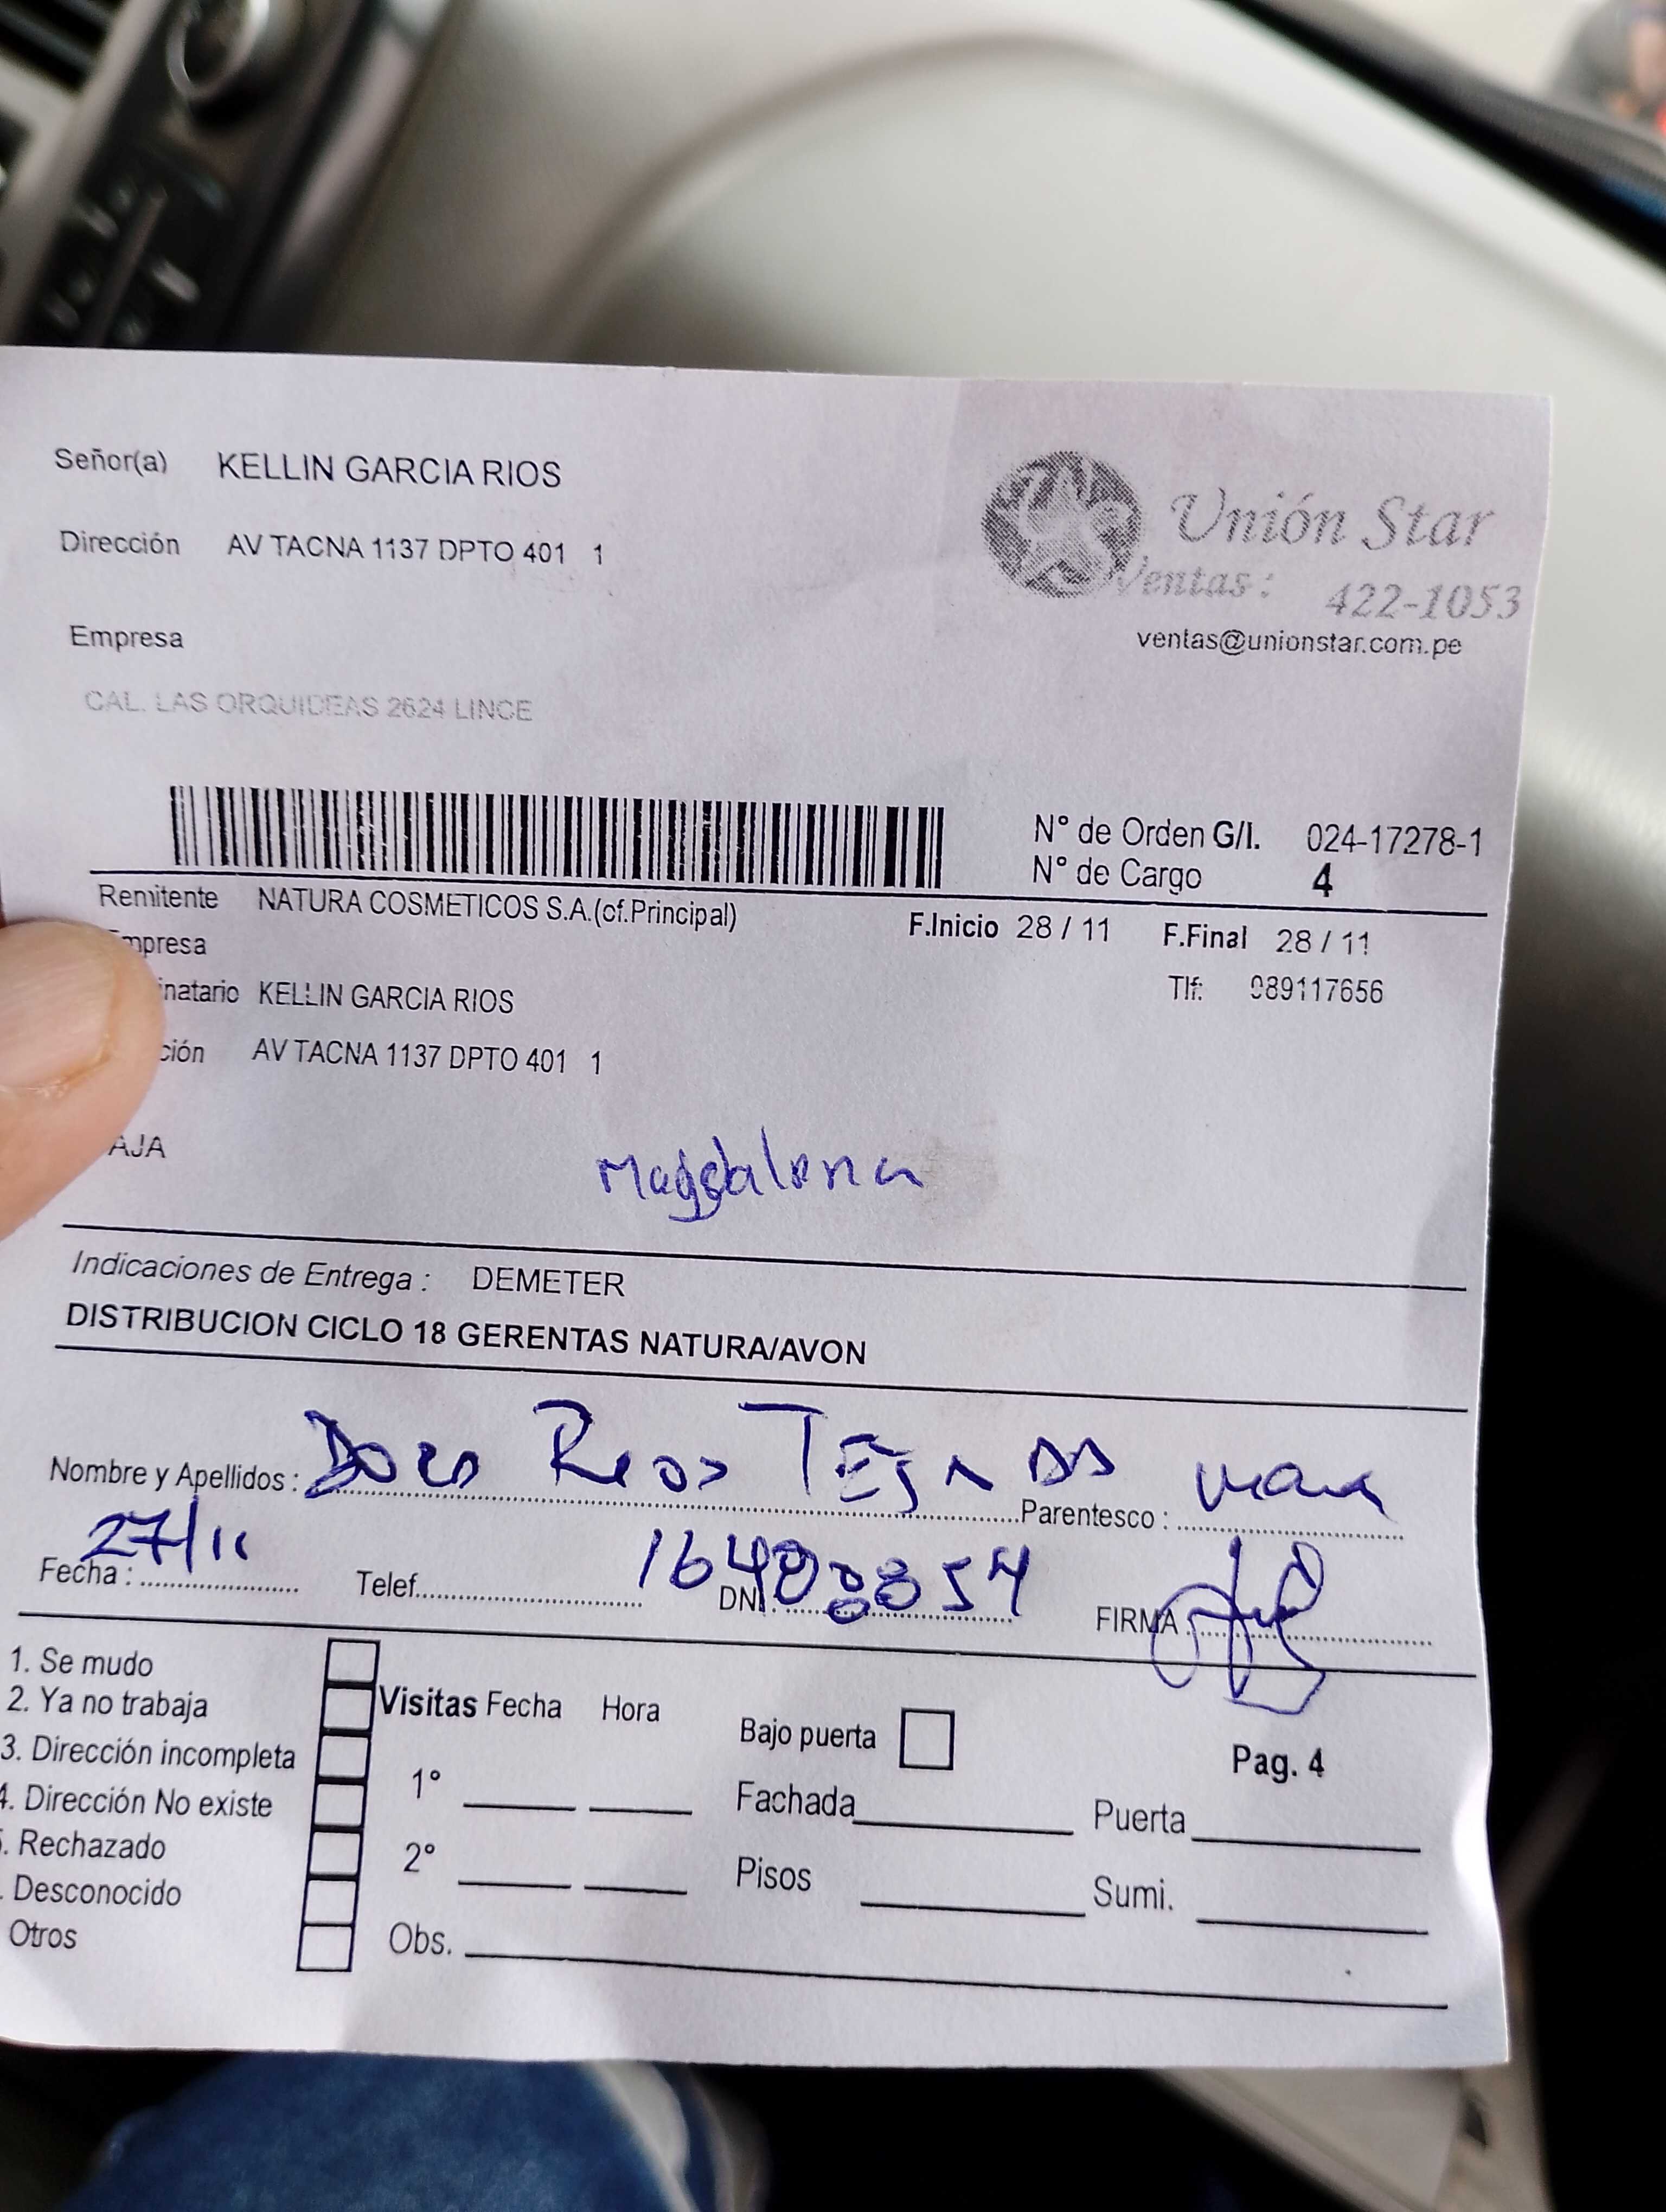 Señor(a) KELLIN GARCIA RIOS
Dirección AV TACNA 1137 DPTO 401 1
Empresa
CAL. LAS ORQUIDEAS 2624 LINCE
Unión Star
Ventas: 422-1053
ventas@unionstar.com.pe
N° de Orden G/I. 024-17278-1
N° de Cargo 4
Remitente NATURA COSMETICOS S.A.(cf.Principal)
F.Inicio 28 / 11 F.Final 28 / 11
mpresa
Tlf: 989117656
inatario KELLIN GARCIA RIOS
ción AV TACNA 1137 DPTO 401 1
AJA
Magdalena
Indicaciones de Entrega : DEMETER
DISTRIBUCION CICLO 18 GERENTAS NATURA/AVON
Nombre y Apellidos : Rios TEJADA Parentesco :
Fecha : 27/11 Telef. DNI. FIRMA
1. Se mudo
2. Ya no trabaja
3. Dirección incompleta
4. Dirección No existe
5. Rechazado
. Desconocido
Otros
Visitas Fecha Hora
1°
2°
Obs.
Bajo puerta
Fachada
Pisos
Pag. 4
Puerta
Sumi.